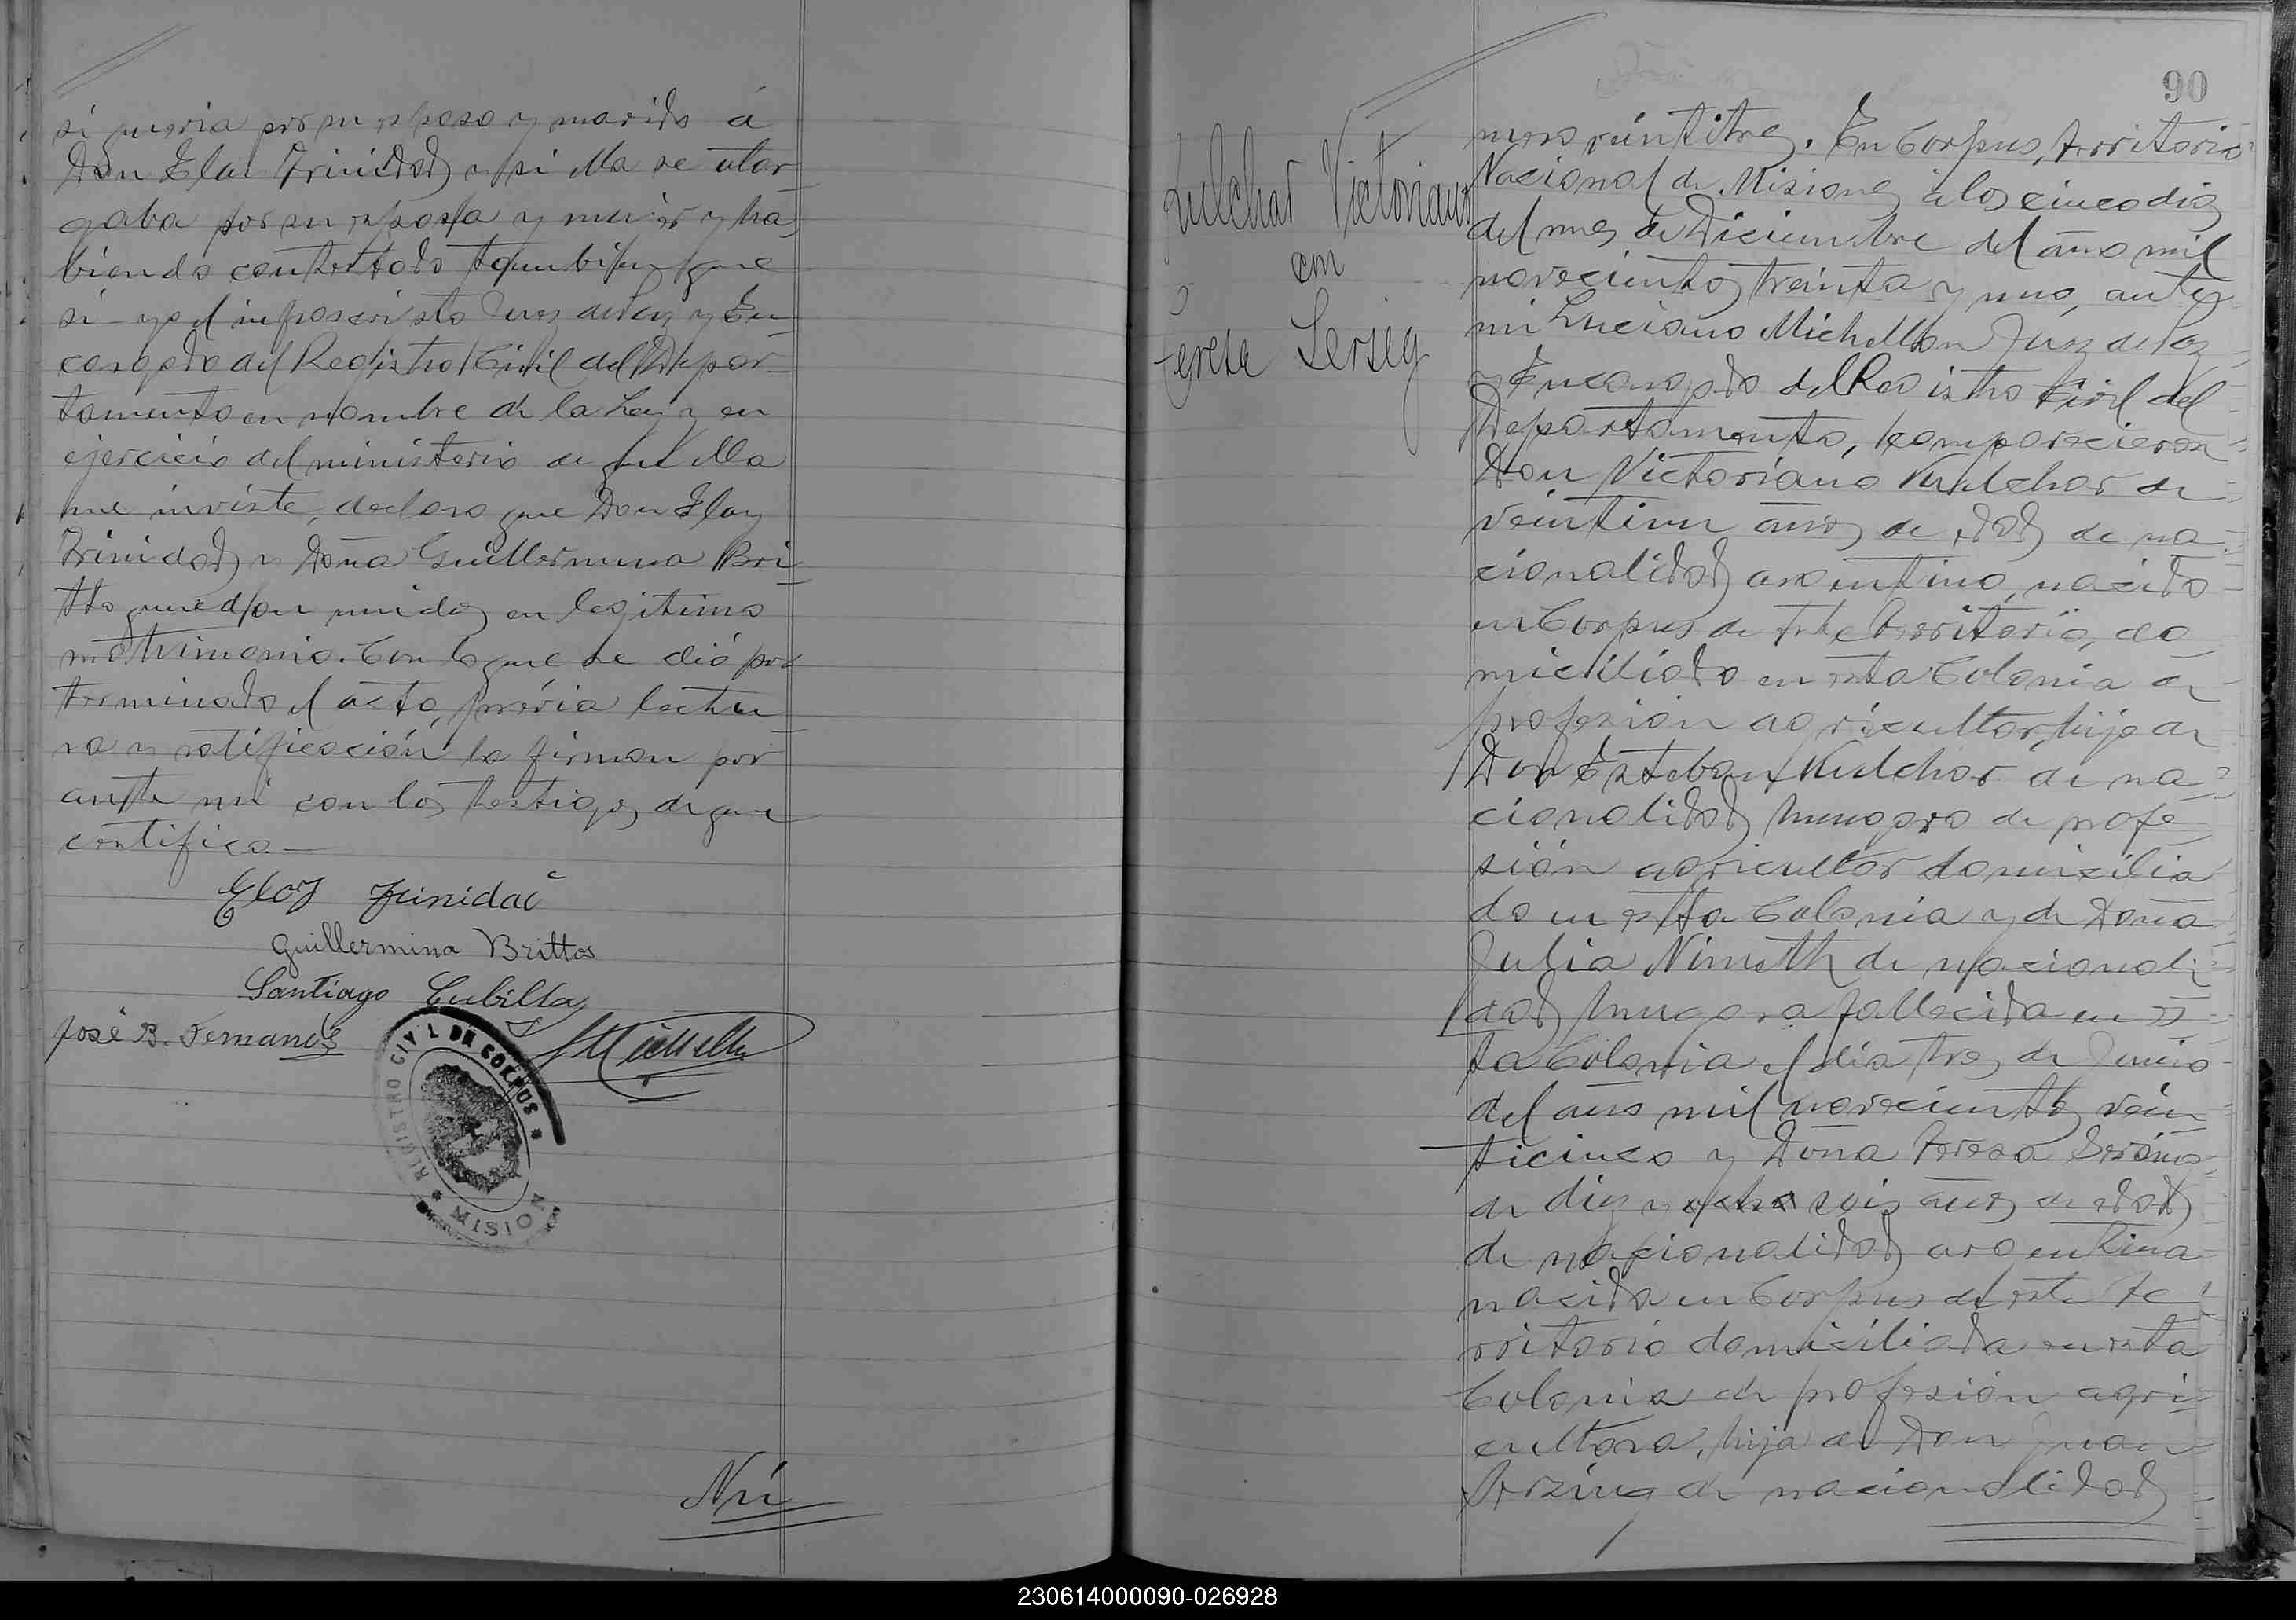 si queria por su esposo y marido á
Don Eloi Trinidad y si ella se otor
gaba por su esposa y mujer y ha
biendo contestado tambien que
si yo el infrascristo Juez de Paz y En
cargado del Registro Civil del Depar
tamento en nombre de la Ley y en
ejercicio del ministerio de que ella
me inviste, declaro que Don Eloy
Trinidad y Doña Guillermina Bri
tto quedan unidos en legitimo
matrimonio. Con lo que se dió por
terminado el acto, prévia lectu
ra y ratificación la firman por
ante mi con los testigos de que
certifico—
Eloy Trinidad
Guillermina Brittos
Santiago Cubilla
José B. Fernandez
REGISTRO CIVIL DE CORPUS
MISION
Nú
90
Kulchar Victoriano
con
Teresa Serseg
mero veintitres. En Corpus, territorio
Nacional de Misiones á los cinco dias
del mes de Diciembre del año mil
novecientos treinta y uno, ante
mi Luciano Michellon Juez de Paz
y Encargado del Registro Civil del
Departamento, comparecieron
Don Victoriano Kulchar de
veintiun años de edad de na
cionalidad argentino, nacido
en Corpus de este territorio, do
miciliado en esta Colonia de
profesión agricultor, hijo de
Don Esteban Kulchar de na
cionalidad hungaro de profe
sión agricultor domicilia
do en esta Colonia y de Doña
Julia Nimeth de nacionali
dad hungara fallecida en es
ta Colonia el dia tres de Junio
del año mil novecientos vein
ticinco y Doña Teresa
de diez y ocho seis años de edad
de nacionalidad argentina
nacida en Corpus de este te
rritorio domiciliada en esta
Colonia de profesión agri
cultora, hija de Don Juan
de nacionalidad
230614000090-026928